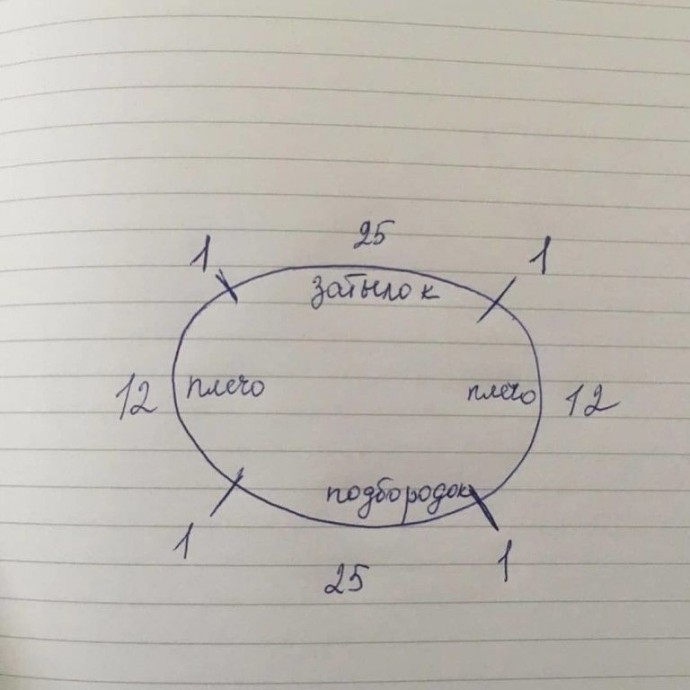 25
1 1
затылок
12 плечо плечо 12
подбородок
1 1
25